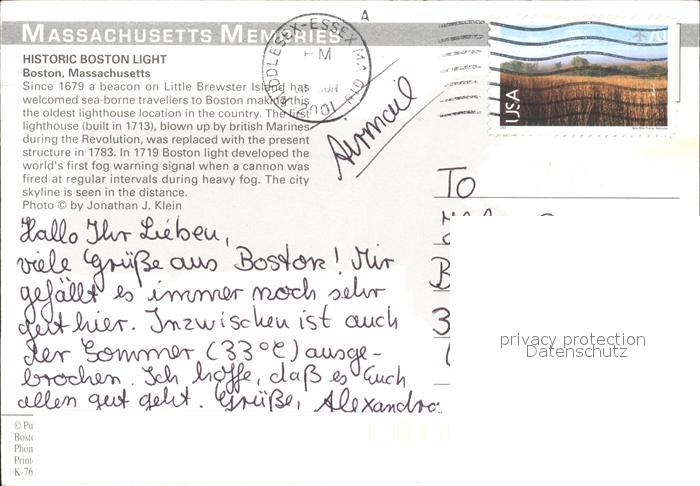 MASSACHUSETTS MEMORIES
HISTORIC BOSTON LIGHT
Boston, Massachusetts
Since 1679 a beacon on Little Brewster Island has
welcomed sea-borne travellers to Boston making this
the oldest lighthouse location in the country. The first
lighthouse (built in 1713), blown up by british Marines
during the Revolution, was replaced with the present
structure in 1783. In 1719 Boston light developed the
world's first fog warning signal when a cannon was
fired at regular intervals during heavy fog. The city
skyline is seen in the distance.
Photo © by Jonathan J. Klein
Hallo Ihr Lieben,
viele Grüße aus Boston! Mir
gefällt es immer noch sehr
gut hier. Inzwischen ist auch
der Sommer (33°C) ausge-
brochen. Ich hoffe, daß es Euch
allen gut geht. Grüße, Alexandra
© Pu
Bost
Phon
Print
K-76
A
MIDDLESEX-ESSEX MA
PM
Airmail
70
USA
To
B
3
privacy protection
Datenschutz